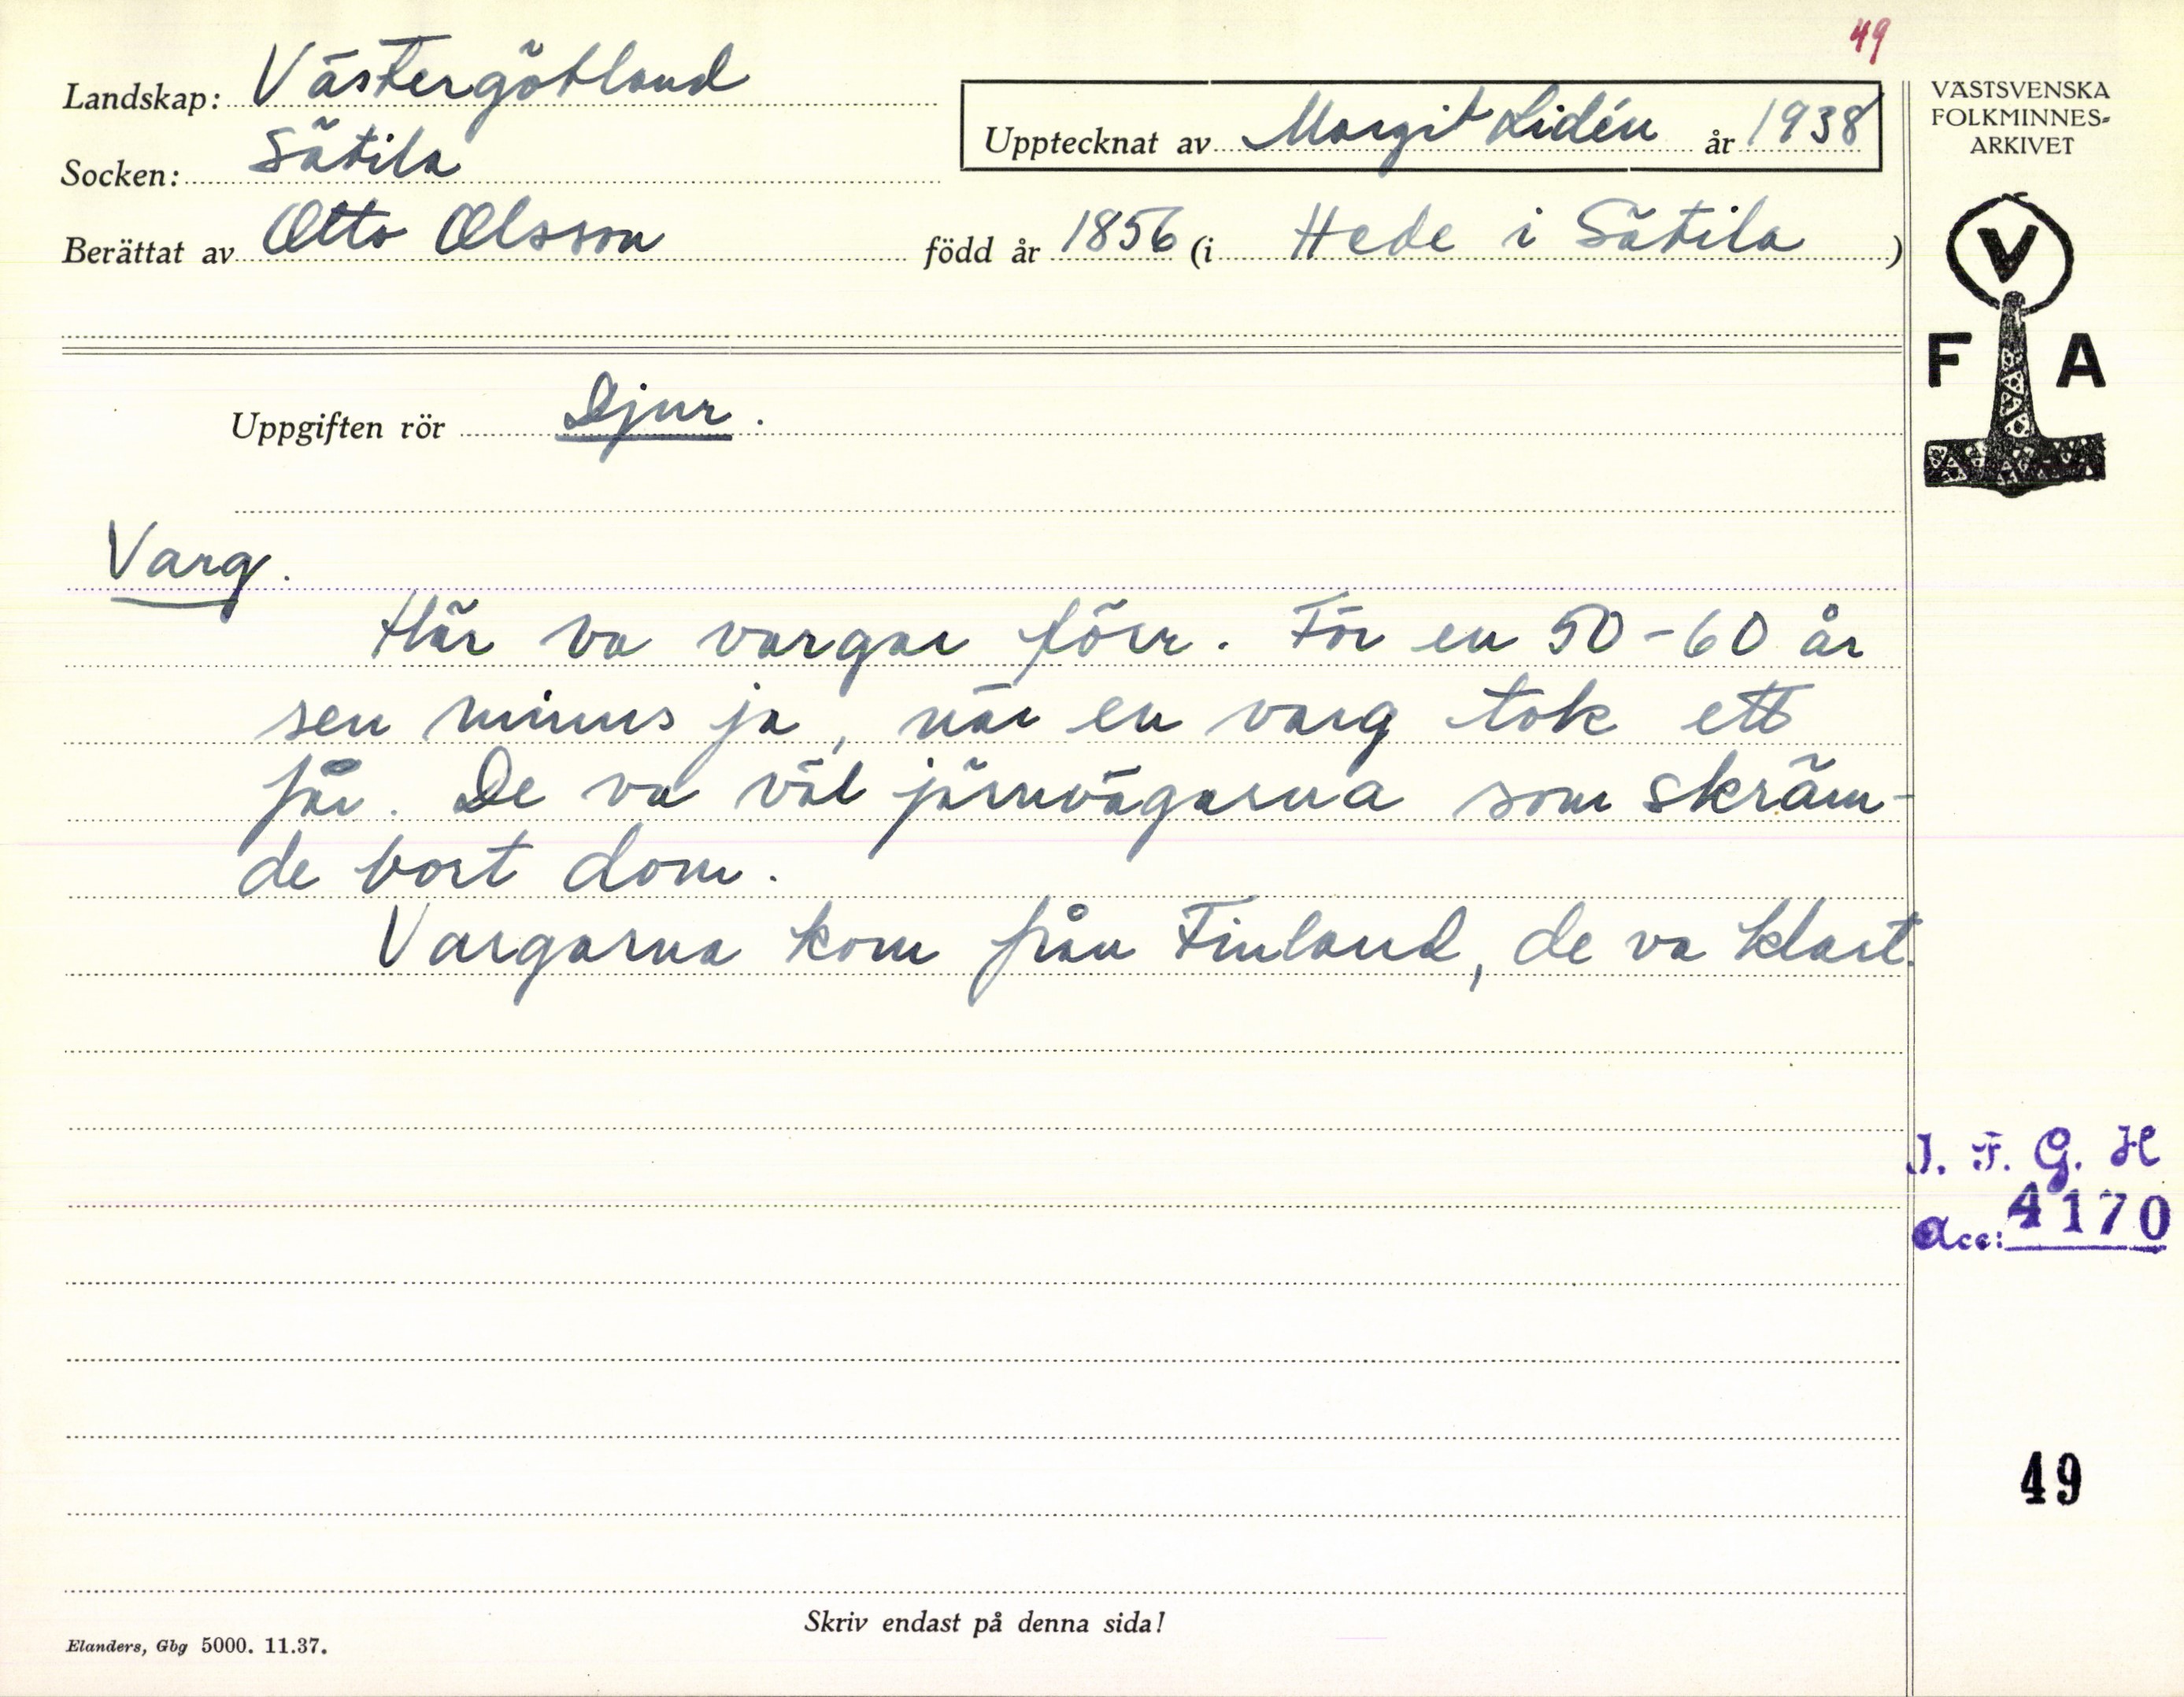 49
Landskap: Västergötland
Socken: Sätila
Berättat av Otto Olsson född år 1856 (i Hede i Sätila)
Upptecknat av Margit Lidén år 1938
VÄSTSVENSKA
FOLKMINNES-
ARKIVET
V
F A
Uppgiften rör Djur.
Varg.
Här va vargar förr. För en 50-60 år
sen minns ja, när en varg tok ett
får. De va väl järnvägarna som skräm-
de bort dom.
Vargarna kom från Finland, de va klart.
I. F. G. H
Acc: 4170
49
Skriv endast på denna sida!
Elanders, Gbg 5000. 11.37.